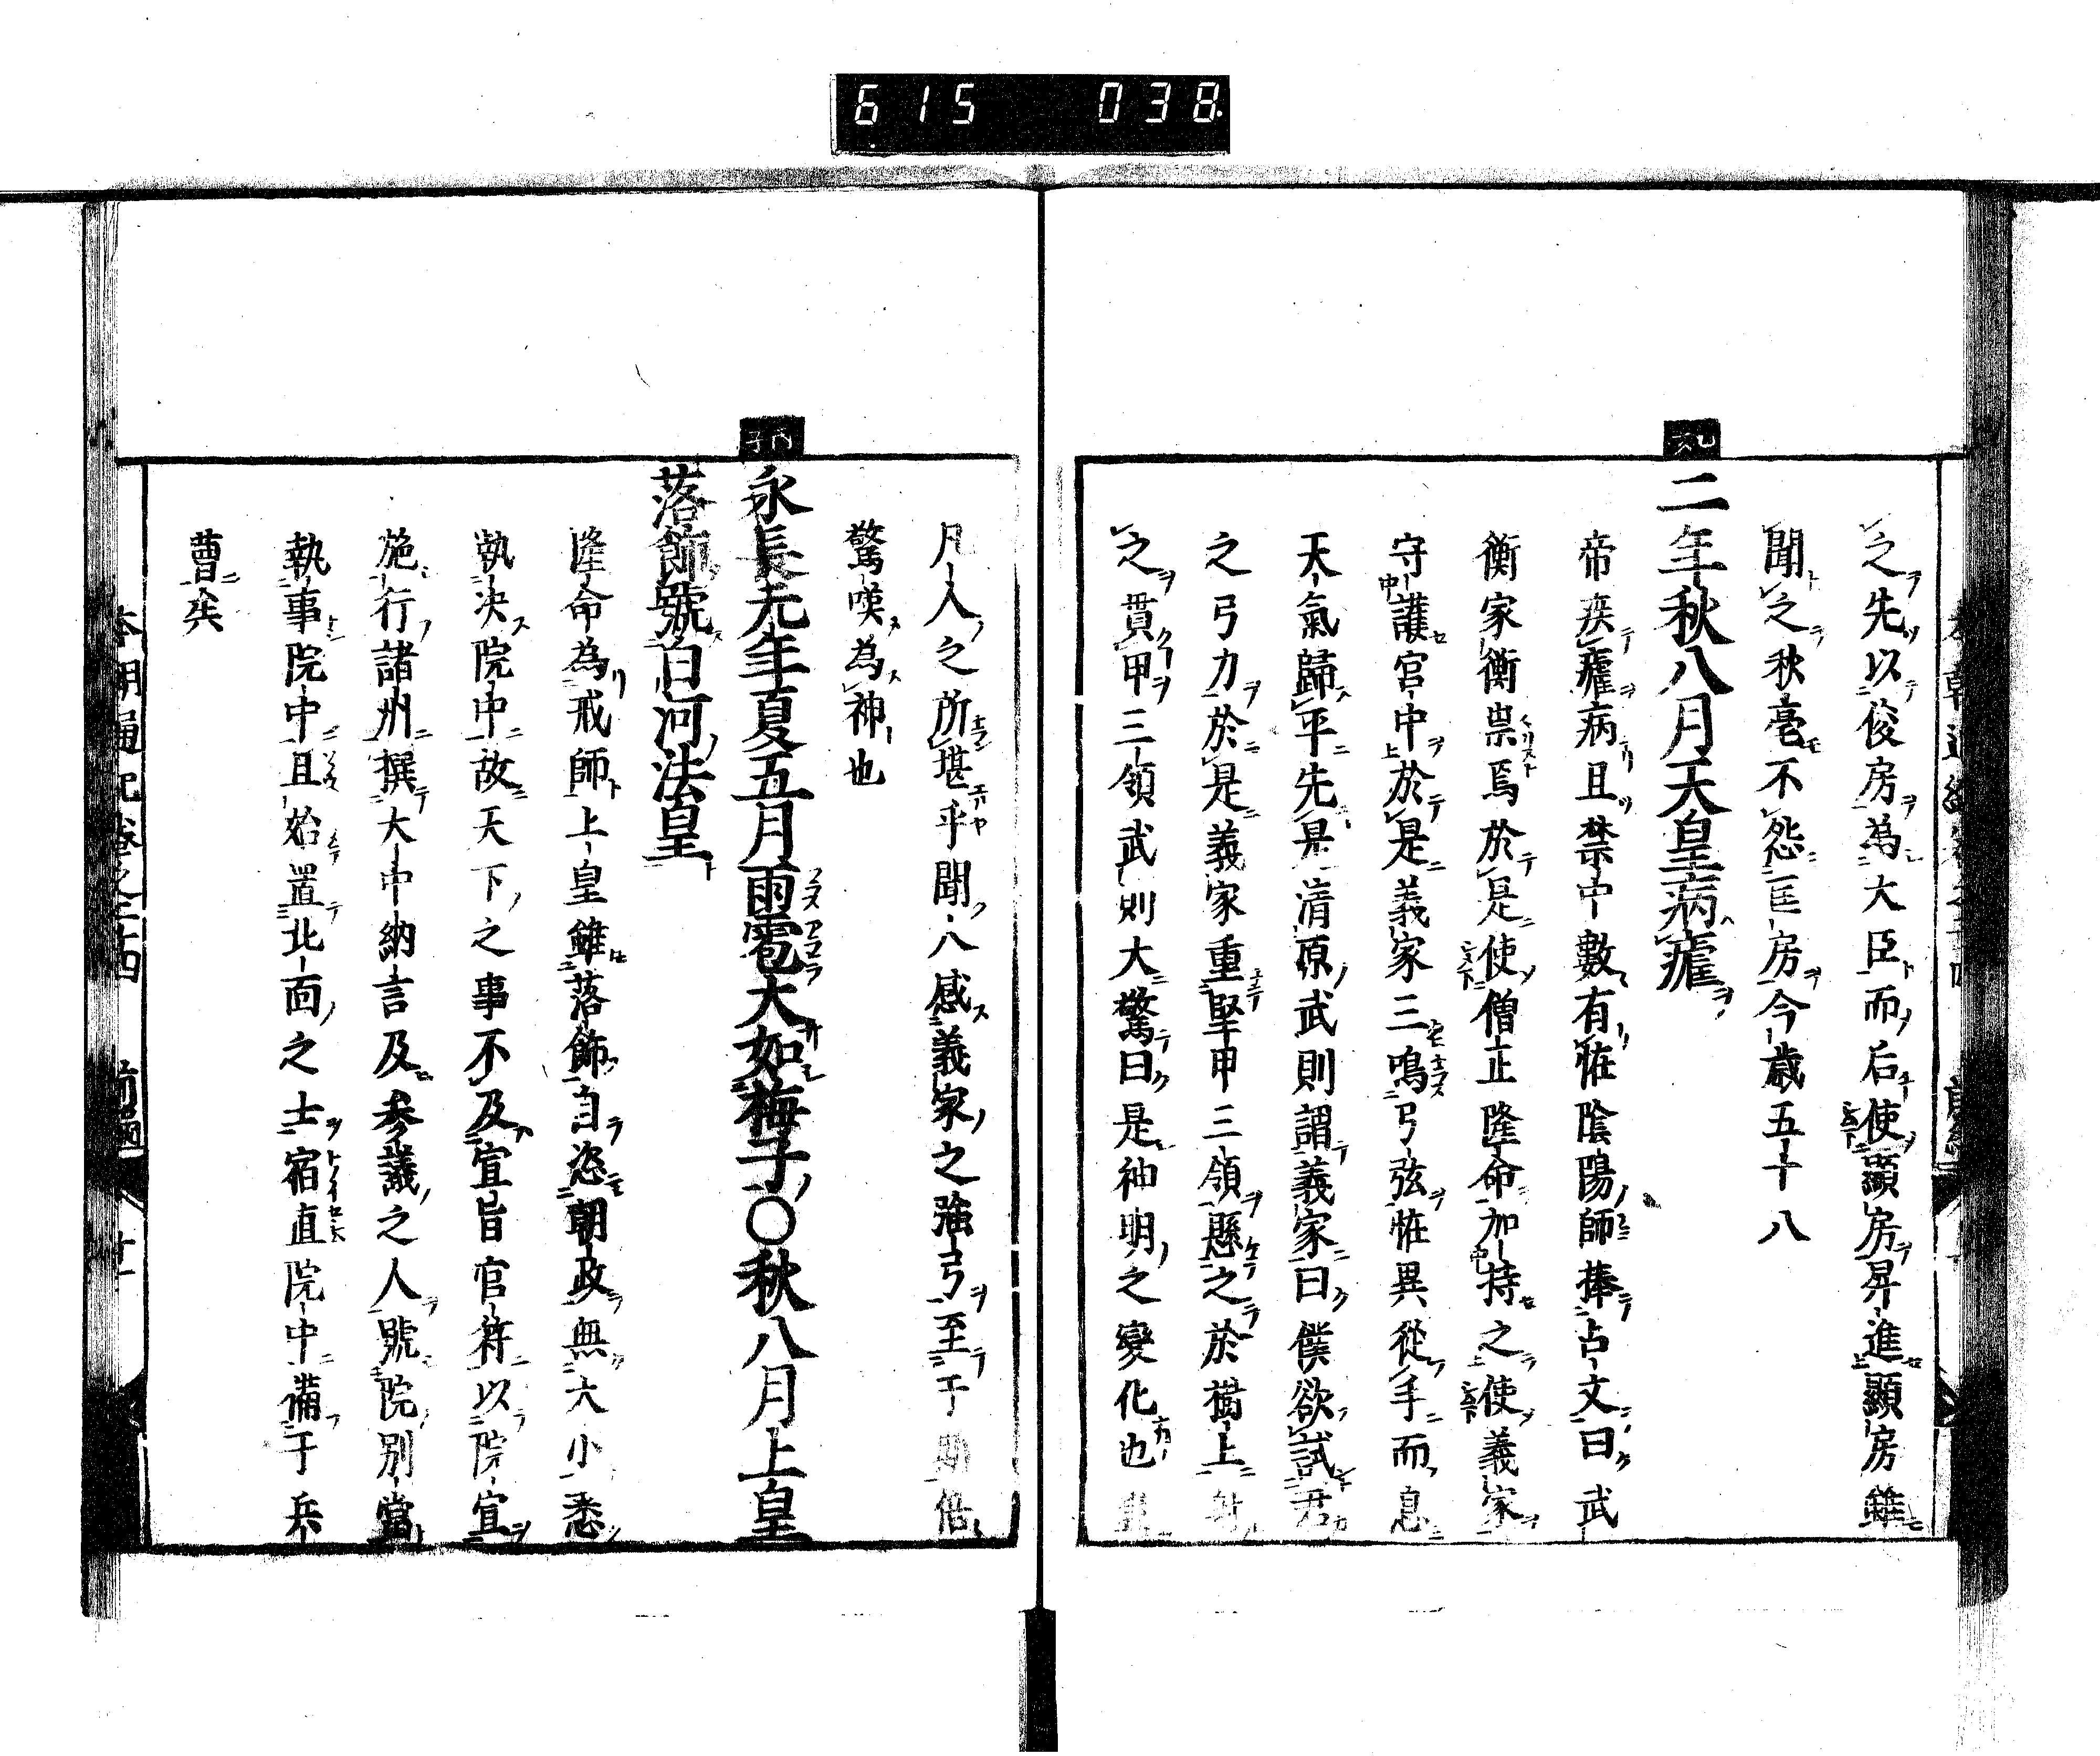 615 038
之先以俊房為大臣而后使顯房昇進顯房雖
聞之秋毫不怨匡房今歲五十八
二年秋八月天皇病瘧
帝疾瘧病且禁中數有恠陰陽師捧占文曰武
衡家衡祟焉於是使僧正隆命加持之使義家
守護宮中於是義家三鳴弓弦恠異從手而息
天氣歸平先是清原武則謂義家曰僕欲試君
之弓力於是義家重堅甲三領懸之於樹上射
之貫甲三領武則大驚曰是神明之變化也
凡人之所堪乎聞人感義家之強弓至于斯倍
驚嘆為神也
丙子
永長元年夏五月雨雹大如梅子〇秋八月上皇
落飾號白河法皇
隆命為戒師上皇雖落飾自恣朝政無大小悉
執决院中故天下之事不及宣旨官符以院宣
施行諸州撰大中納言及參議之人號院別當
執事院中且始置北面之士宿直院中備于兵
曹矣
本朝通紀卷之四 前編 廿一